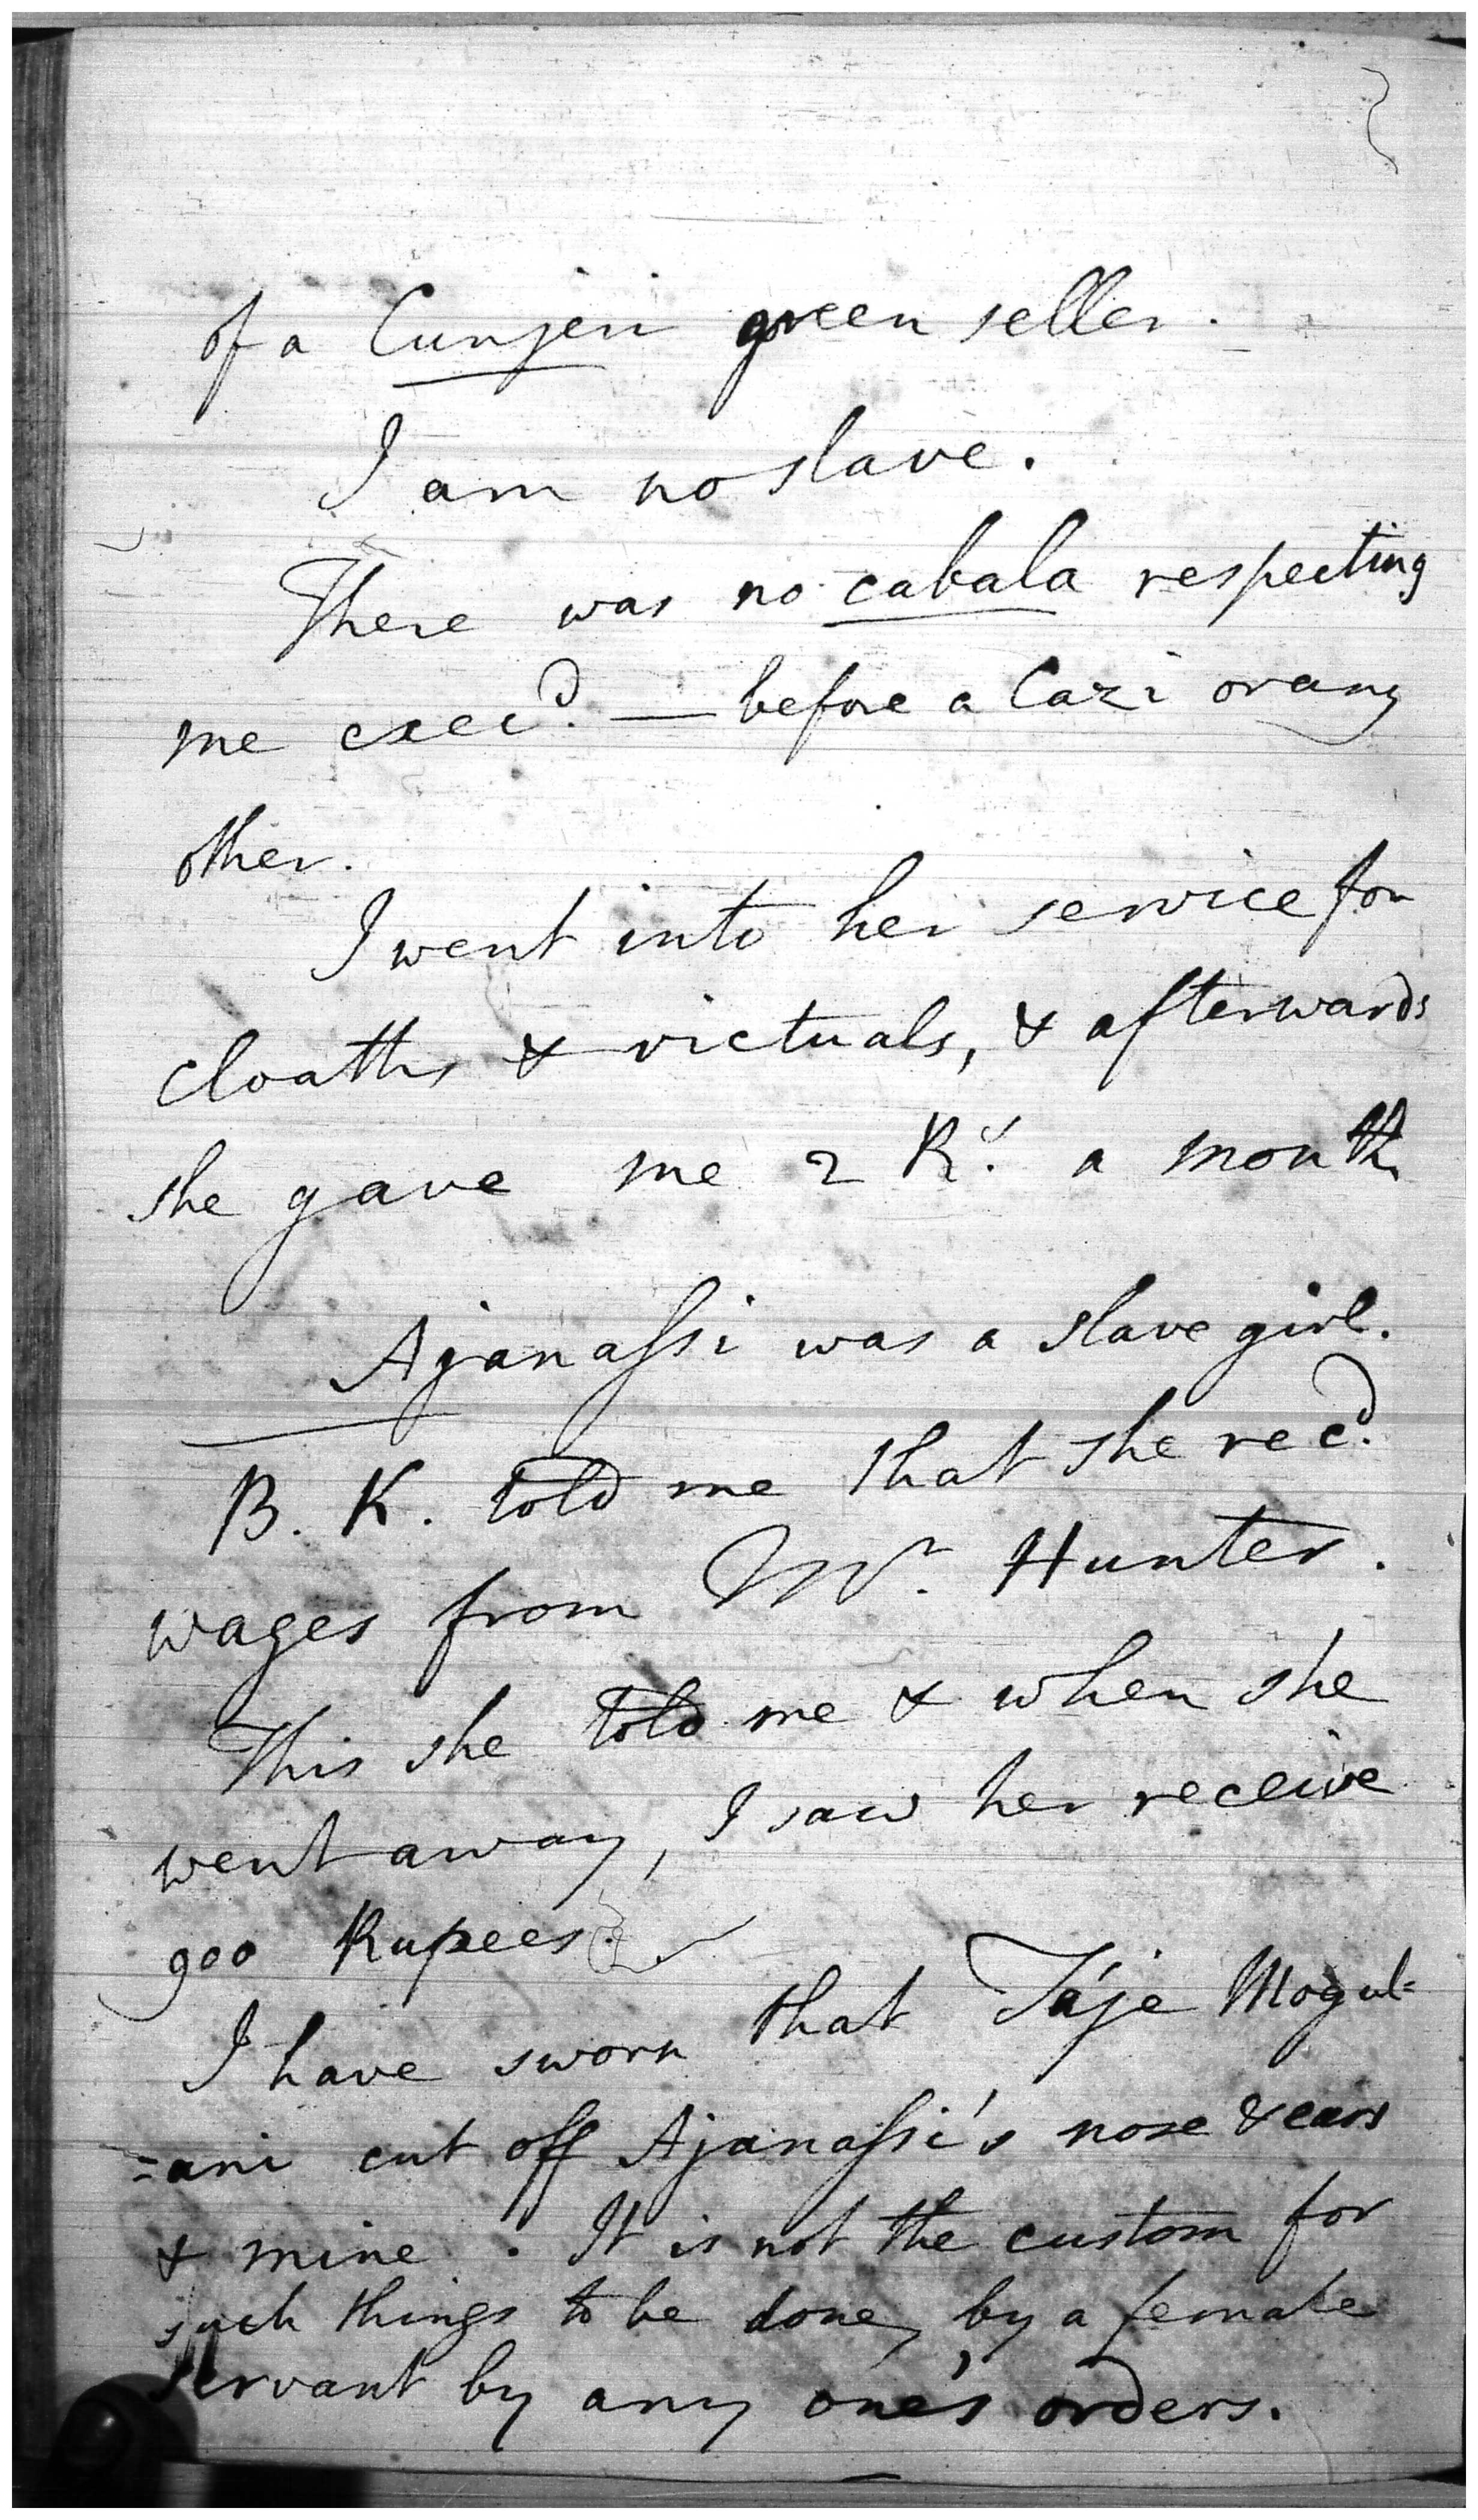 of a Cunjeri green seller.
I am no slave.
There was no cabala respecting
me exec.d — before a Cazi or any
other.
I went into her service for
cloaths & victuals, & afterwards
she gave me 2 R.s a month
Ajanassi was a slave girl.
B. K. told me that she rec.d
wages from Mr. Hunter.
This she told me & when she
went away, I saw her receive
900 Rupees.
I have sworn that Táje Mogul=
=ani cut off Ajanassi's nose & ears
& mine. It is not the custom for
such things to be done, by a female
servant by any one's orders.